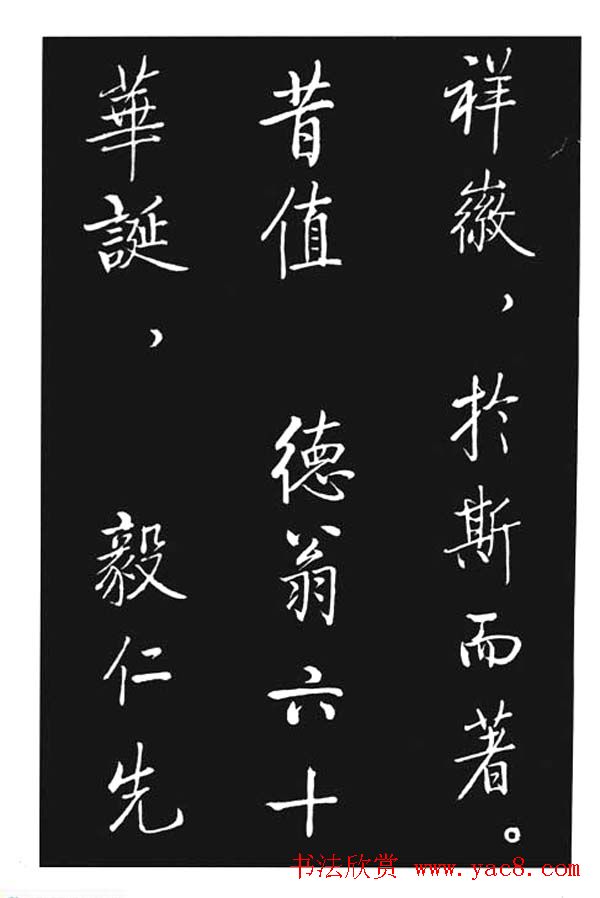 祥徽，於斯而著。
昔值 德翁六十
華誕， 毅仁先
书法欣赏 www.yac8.com